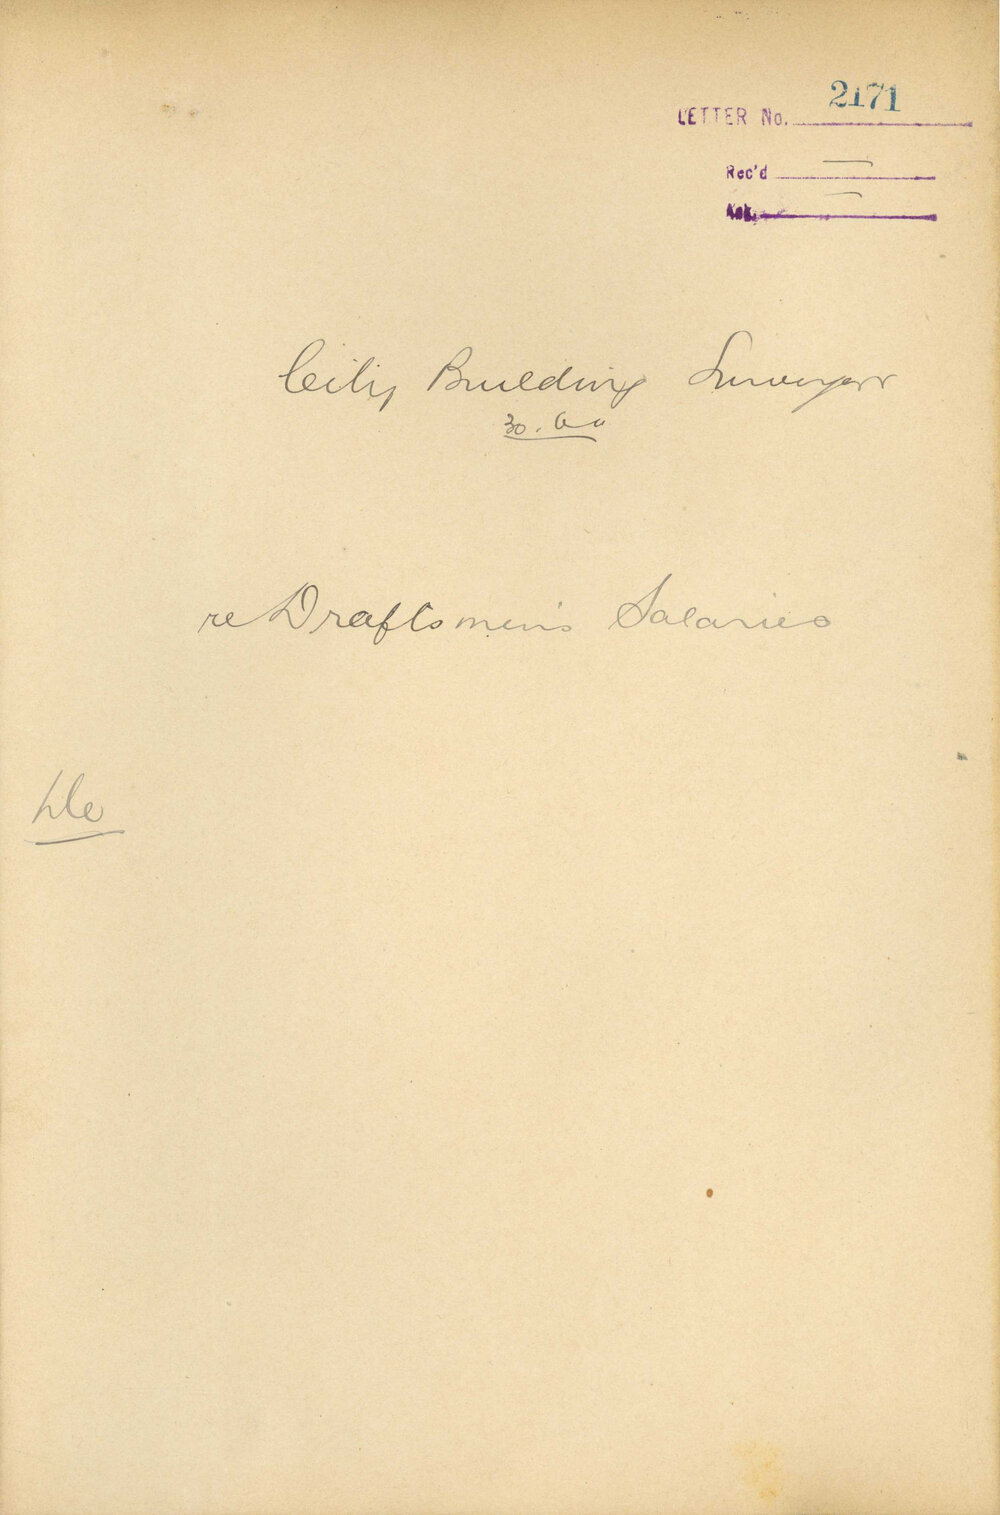 LETTER No. 2171
Rec'd —
Ack. —
City Building Surveyor
re Draftsmen's Salaries